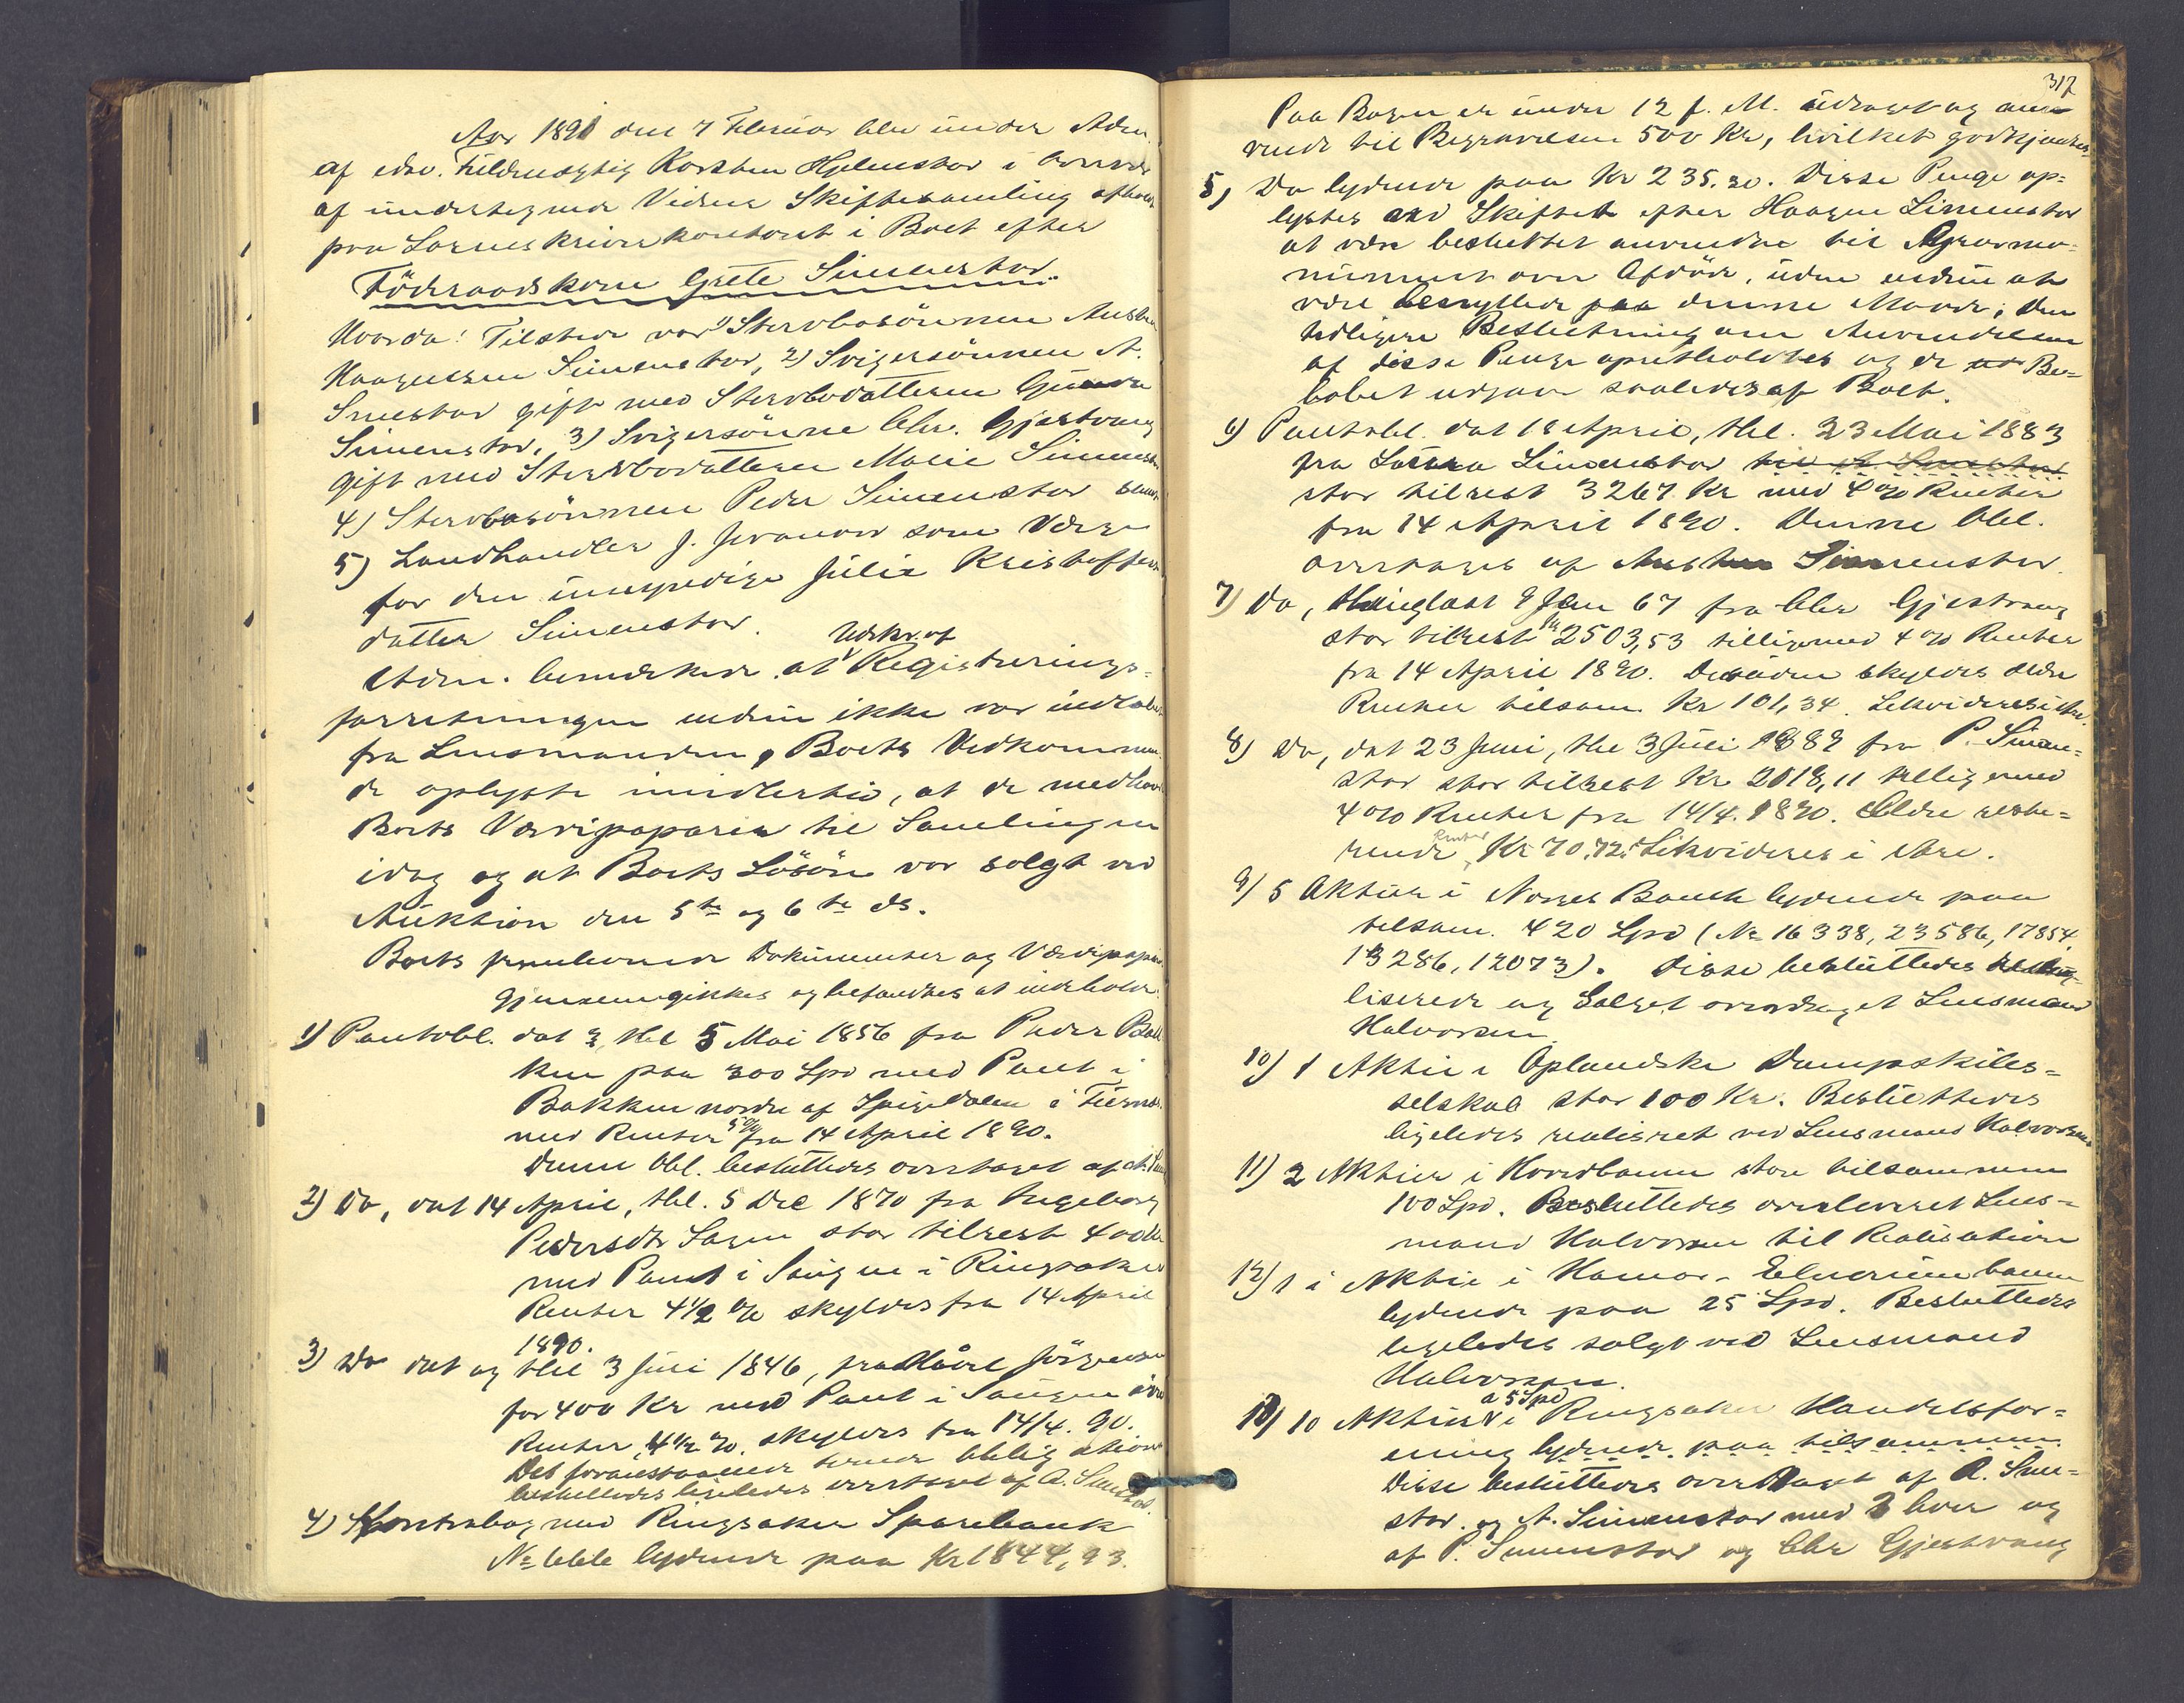 Aar 1891 den 7 Februar blev under Adm.
af edsv. Fuldmægtig Karsten Hjelmstad i Nærvær
af undertegnede Vidner Skiftesamling afholdt
paa Sorenskriverkontoret i Boet efter
Föderaadskone Grete Simenstad.
Hvorda: Tilstede var 1) Stervbosönnen Austen
Haagensen Simenstad, 2) Svigersönnen A.
Smestad gift med Stervbodatteren Gunda
Simenstad, 3) Svigersönne Chr. Gjestvang
gift med Stervbodatteren Marie Simenstad
4) Stervbosönnen Peder Simenstad samt
5) Landhandler J. som Værge
for den umyndige Julie Kristoffers
datter Simenstad.
Udskr. af
Adm. bemærkede at Registrerings-
forretningen endnu ikke var indløbet
fra Lensmanden, Boets Vedkommen
de oplyste imidlertid, at de medhavde
Boets Værdipapirer til Samlingen
idag og at Boets Lösöre var solgt ved
Auktion den 5te og 6te ds.
Boets fremkomne Dokumenter og Værdipapirer
gjennemgikkes og befandtes at indeholde
1) Pantobl. dat 3, thl 5 Mai 1856 fra Peder Bak
ken paa 300 Spd med Pant i
Bakken nordre af Spigdalen i Furnæs
med Renter 5 % fra 14 April 1890.
Denne Obl. besluttedes overtaget af A. Smestad
2) Do, dat 14 April, thl. 5 Dec 1870 fra Ingeborg
Pedersdtr Saugen stor tilrest 400 Kr
med Pant i Saugen i Ringsaker
Renter 4 1/2 % skyldes fra 14 April
1890.
3) Do dat og thl 3 Juli 1846, fra Jörgensen
for 400 Kr med Pant i Saugen övre
Renter 4 1/2 %. skyldes fra 14/4. 90.
Det foranstaaende Obligation
besluttedes ligeledes overtaget af A. Smestad.
4) Kontrabog med Ringsaker Sparebank
No lydende paa Kr 1844,93.
317
Paa Bogen er under 12 f. M. udtaget og anv
endt til Begravelsen 500 Kr, hvilket godkjendtes
5) Do lydende paa Kr 235.30. Disse Penge op-
lystes ved Skiftet efter Haagen Simenstad
at være besluttet anvendte til Gravmo-
nument over Afdöde, uden endnu at
være benyttede paa denne Maade; den
tidligere Beslutning om Anvendelsen
af disse Penge opretholdtes og de Be-
löbet udgaar saaledes af Boet.
6) Pantobl. dat 18 April, thl. 23 Mai 1883
fra Simenstad til A Smestad
stor tilrest 3267 Kr med 4 % Renter
fra 14 April 1890. Denne Obl.
overtages af Austen Simenstad.
7) Do, thinglæst 9 Jan 67 fra Chr Gjestvang
stor tilrest Kr 2503,53 tilligemed 4 % Renter
fra 14 April 1890. Desuden skyldes ældre
Renter tilsam. Kr 101,34. Likvideres i Arv.
8) Do, dat 23 Juni, thl 3 Juli 1889 fra P. Simen-
stad stor tilrest Kr 2018,11 tilligemed
4 % Renter fra 14/4. 1890. Ældre reste-
rende Renter Kr 70.72. Likvideres i Arv.
9) 5 Aktier i Norges Bank lydende paa
tilsam. 420 Spd (No 16338, 23586, 17854,
13286, 12073). Disse besluttedes
liserede og Salget overdraget Lensmand
Halvorsen
10) 1 Aktie i Oplandske Dampskibs-
selskab stor 100 Kr. Besluttedes
ligeledes realiseret ved Lensmand Halvorsen
11) 2 Aktier i Hovedbanen store tilsammen
100 Spd. Besluttedes overleveret Lens-
mand Halvorsen til Realisation
12) 1 i Aktie i Hamar-Elverumbanen
lydende paa 25 Spd. Besluttedes
ligeledes solgt ved Lensmand
Halvorsen.
a 5 Spd
13) 10 Aktier i Ringsaker Handelsfor-
ening lydende paa tilsammen
Disse besluttedes overtaget af A. Sme-
stad. og A. Simenstad med 3 hver og
af P. Simenstad og Chr Gjestvang